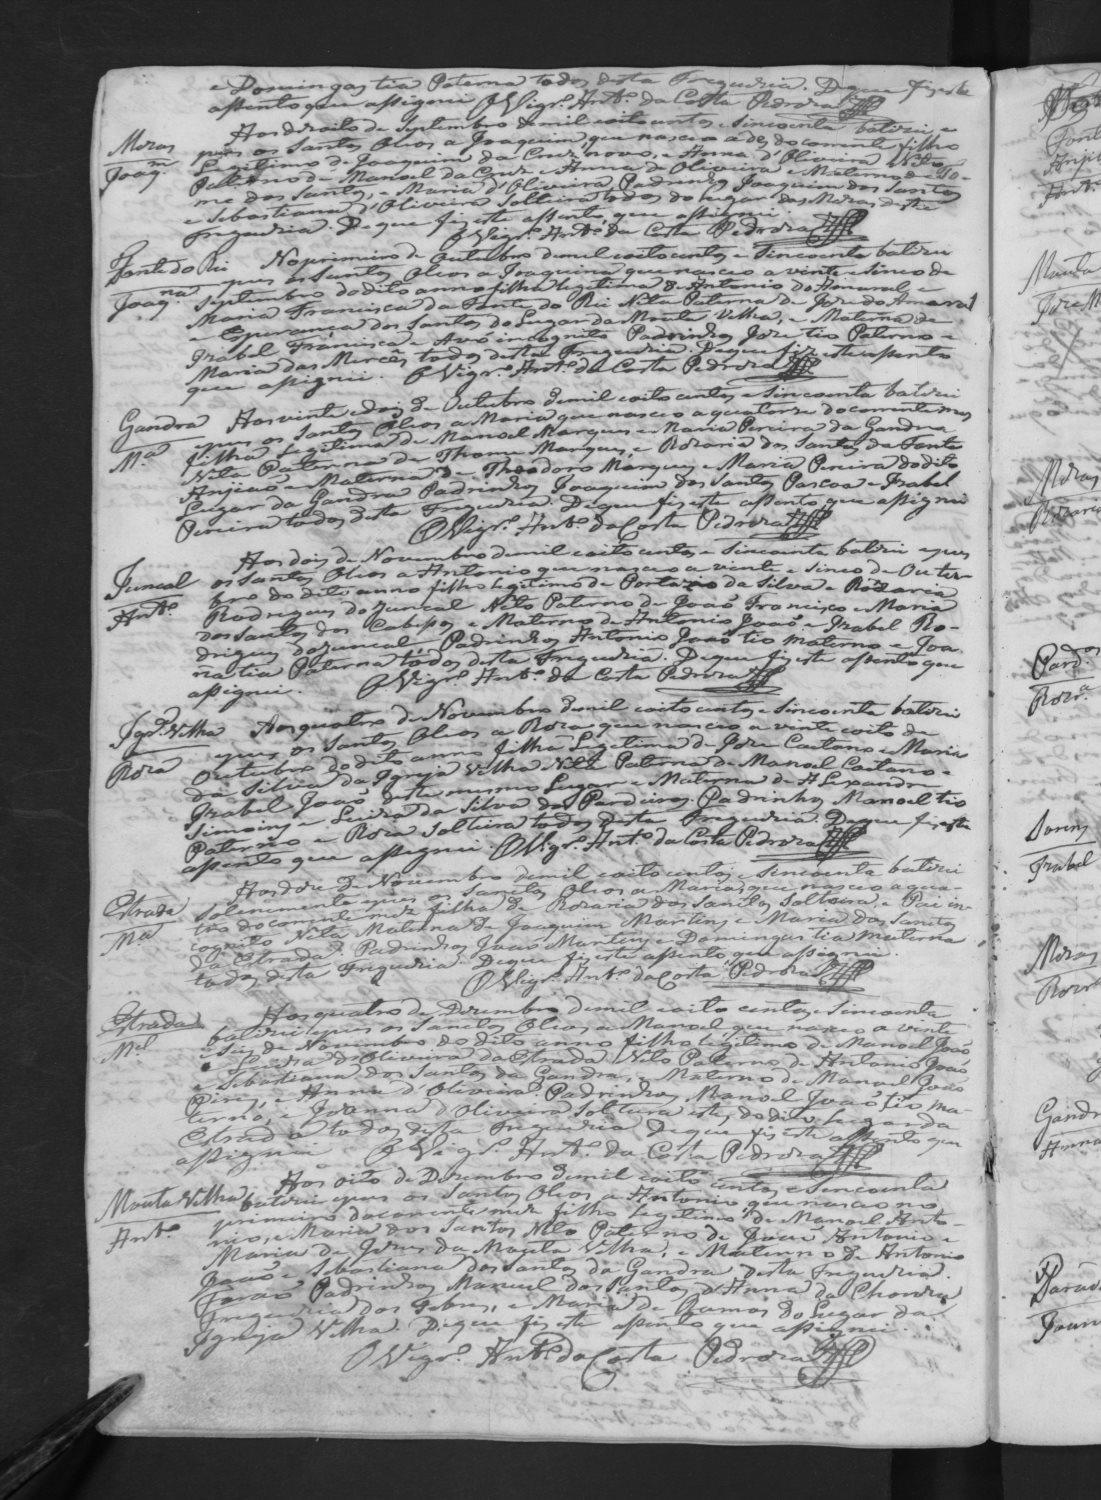 e Domingas tia Paterna todos desta Freguezia. Deque fiz este
assento que assignei O Vigr.º Ant.º da Costa Pedroza
Moras
Joaq.m
Aos dezoito de Septembro de mil e oito centos e Sincoenta batizei e
pus os Santos Oleos a Joaquim, que nasceo a des do corrente filho
Legitimo de Joaquim da Cruz novo, e Anna d'Oliveira Neto
Paterno de Manoel da Cruz e Anna de Oliveira e Materno de
me dos Santos, e Maria d'Oliveira Padrinhos Joaquim dos Santos
e Sebastiana d'Oliveira Solteira todos do Lugar das Moras desta
Freguezia. De que fiz este assento, que assignei.
O Vigr.º Ant.º da Costa Pedroza
Fonte do Rei
Joaq.na
No primeiro de Outubro de mil e oito centos e Sincoenta batizei
e pus os Santos Oleos a Joaquina que nasceo a vinte e Sinco de
Septembro do dito anno filha legitima de Antonio do Amaral e
Maria Francisca da Fonte do Rei Neta Paterna de Jozé do Amaral
e Esperança dos Santos do Lugar da Mouta Velha, e Materna de
Izabel Francisca e Avô incognito Padrinhos Jozé tio Paterno e
Maria das Mercês todos desta Freguezia De que fiz este assento
que assignei. O Vigr.º Ant.º da Costa Pedroza
Gandra
M.a
Aos vinte e dois de Outubro de mil e oito centos e Sincoenta batizei
e pus os Santos Oleos a Maria que nasceo a quatorze do corrente mes
filha Legitima de Manoel Marques e Maria Pereira da Gandra
Neta Paterna de Thome Marques, e Rozaria dos Santos da Fonte
Anjiaõ e Materna de Theodoro Marques e Maria Pereira do dito
Lugar da Gandra Padrinhos Joaquim dos Santos Pascoa e Izabel
Pereira todos desta Freguezia. De que fiz este assento que assignei
O Vigr.º Ant.º da Costa Pedroza
Juncal
Ant.º
Aos dois de Novembro de mil e oito centos e Sincoenta batizei e pus
os Santos Oleos a Antonio que nasceo a vinte e sinco de Outu-
bro do dito anno filho legitimo de da Silva e Rozaria
Rodrigues do Juncal Neto Paterno de Joaõ Francisco e Maria
dos Santos dos Cabeços e Materno de Antonio Joaõ e Izabel Ro-
drigues do Juncal Padrinhos Antonio Joaõ tio materno e Joa-
na tia Paterna todos desta Freguezia. De que fiz este assento que
assignei. O Vigr.º Ant.º da Costa Pedroza
Igr.ª Velha
Roza
Aos quatro de Novembro de mil e oito centos e Sincoenta batizei
e pus os Santos Oleos a Roza, que nasceo a vinte e oito de
Outubro do dito anno filha Legitima de Joze Caetano e Maria
da Silva da Igreja Velha Neta Paterna de Manoel Caetano e
Izabel Joaõ deste mesmo Lugar e Materna de Alexandre
Simoins e Luiza da Silva dos Pardieiros Padrinhos Manoel tio
Paterno e Roza Solteira todos desta Freguezia. De que fiz este
assento que assignei O Vigr.º Ant.º da Costa Pedroza
Estrada
M.a
Aos doze de Novembro de mil e oito centos, e Sincoenta batizei
Solenemente e pus os Santos Oleos a Maria, que nasceo a qua-
tro do corrente mez filha de Rozaria dos Santos Solteira e Pai in-
cognito Neta Materna de Joaquim Martins e Maria dos Santos
da Estrada. Padrinhos Joaõ Martins e Domingas tia Materna
todos desta Freguezia. De que fiz este assento que assignei.
O Vigr.º Ant.º da Costa Pedroza
Estrada
M.el
Aos quatro de Dezembro de mil e oito centos e Sincoenta
batizei e pus os Santos Oleos a Manoel, que nasceo a vinte
e Seis de Novembro do dito anno filho legitimo de Manoel Joaõ
e d'Oliveira da Estrada Neto Paterno de Antonio Joaõ
e Sebastiana dos Santos da Gandra, e Materno de Manoel Joaõ
Pires, e Anna d'Oliveira. Padrinhos Manoel Joaõ tio ma-
terno, e Joanna d'Oliveira Solteira estes do dito Lugar da
Estrada todos desta Freguezia De que fiz este assento que
assignei O Vigr.º Ant.º da Costa Pedroza
Mouta Velha
Ant.º
Aos oito de Dezembro de mil e oito centos e Sincoenta
batizei e pus os Santos Oleos a Antonio que nasceo no
primeiro do corrente mez filho legitimo de Manoel Anto-
nio, e Maria dos Santos Neto Paterno de Antonio e
Maria de Jezus da Mouta Velha, e Materno de Antonio
Joaõ e Sebastiana dos Santos da Gandra desta Freguezia.
Foraõ Padrinhos Manuel dos Santos d'Anna da
Freguezia dos, e Maria de Ramos do Lugar da
Igreja Velha. De que fiz este assento que assignei.
O Vigr.º Ant.º da Costa Pedroza
Mouta
Joze M
Moras
Rozaria
Pard.os
Roz.ª
Izabel
Moras
Gandra
Anna